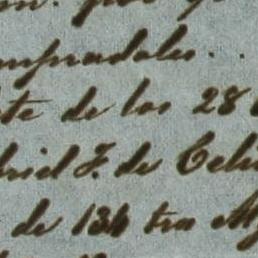 mpradales . .
te de los 28
briel F. de Celi
de 134 tra My